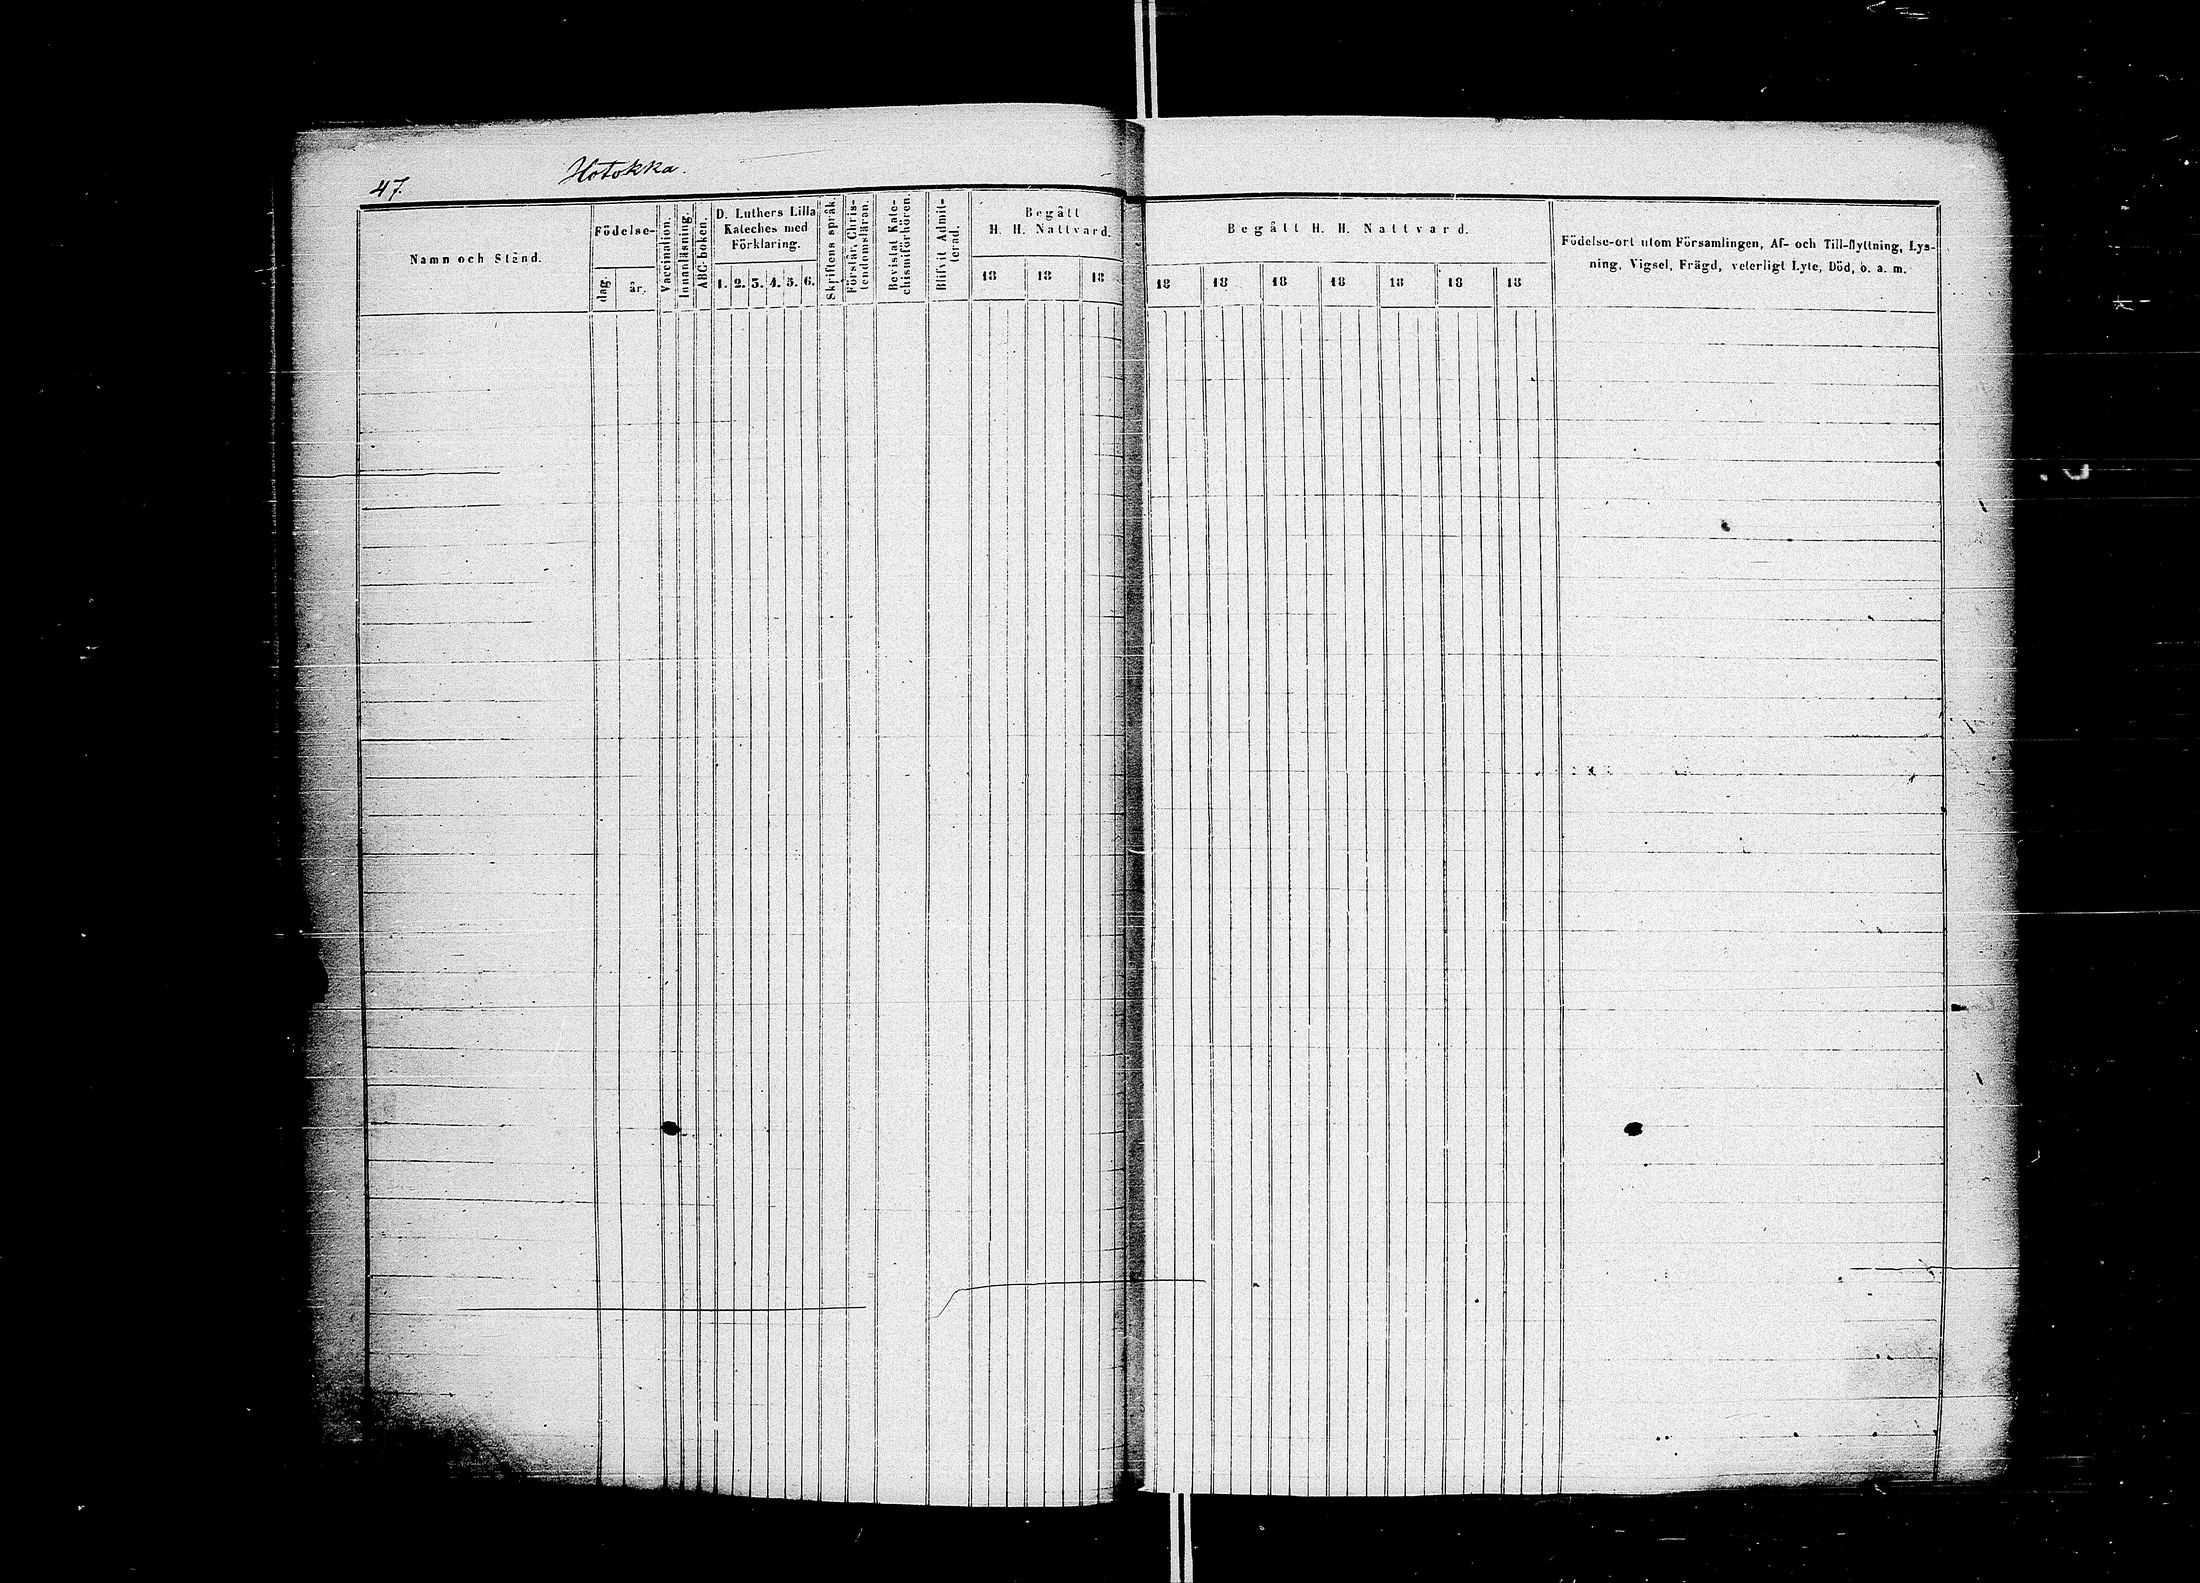 47.
Hotokka.
Namn och Stånd.
Födelse-
dag.
år.
Vaccination.
Innanläsning.
ABC-boken.
D. Luthers Lilla
Kateches med
Förklaring.
1. 2. 3. 4. 5. 6.
Skriftens språk.
Förstår Chris-
tendomsläran.
Bevistat Kate-
chismiförhören.
Blifvit Admit-
terad.
Begått
H. H. Nattvard.
18 18 18
Begått H. H. Nattvard.
18 18 18 18 18 18 18
Födelse-ort utom Församlingen, Af- och Till-flyttning, Lys-
ning, Vigsel, Frägd, veterligt Lyte, Död, o. a. m.